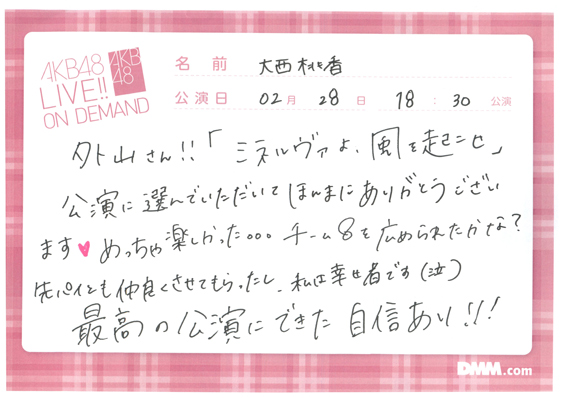 AKB48
LIVE!!
ON DEMAND
AKB
48
名前 大西桃香
公演日 02月 28日 18:30 公演
外山さん!!「ミネルヴァよ、風を起こせ」
公演に選んでいただいてほんまにありがとうござい
ます♥めっちゃ楽しかった。。。チーム8を広められたかな?
先パイとも仲良くさせてもらったし、私は幸せ者です(泣)
最高の公演にできた自信あり!!!
DMM.com